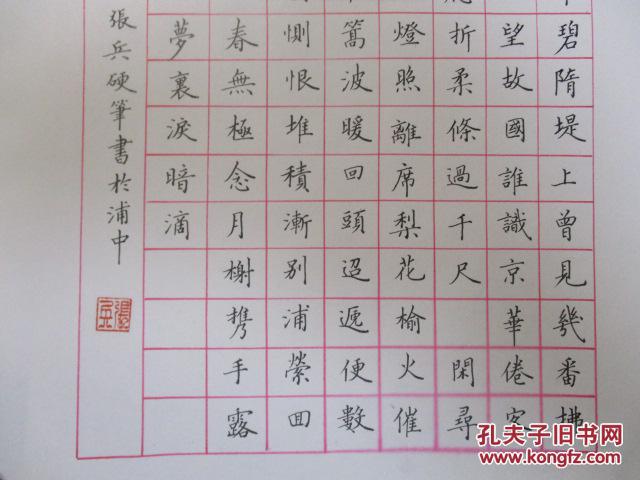 碧隋堤上曾見幾番拂
望故國誰識京華倦客
折柔條過千尺 閑尋
燈照離席梨花榆火催
篙波暖回頭迢遞便數
惻恨堆積漸别浦縈囬
春無極念月榭携手露
夢裏淚暗滴
張兵硬筆書於浦中
張兵
孔夫子旧书网
www.kongfz.com